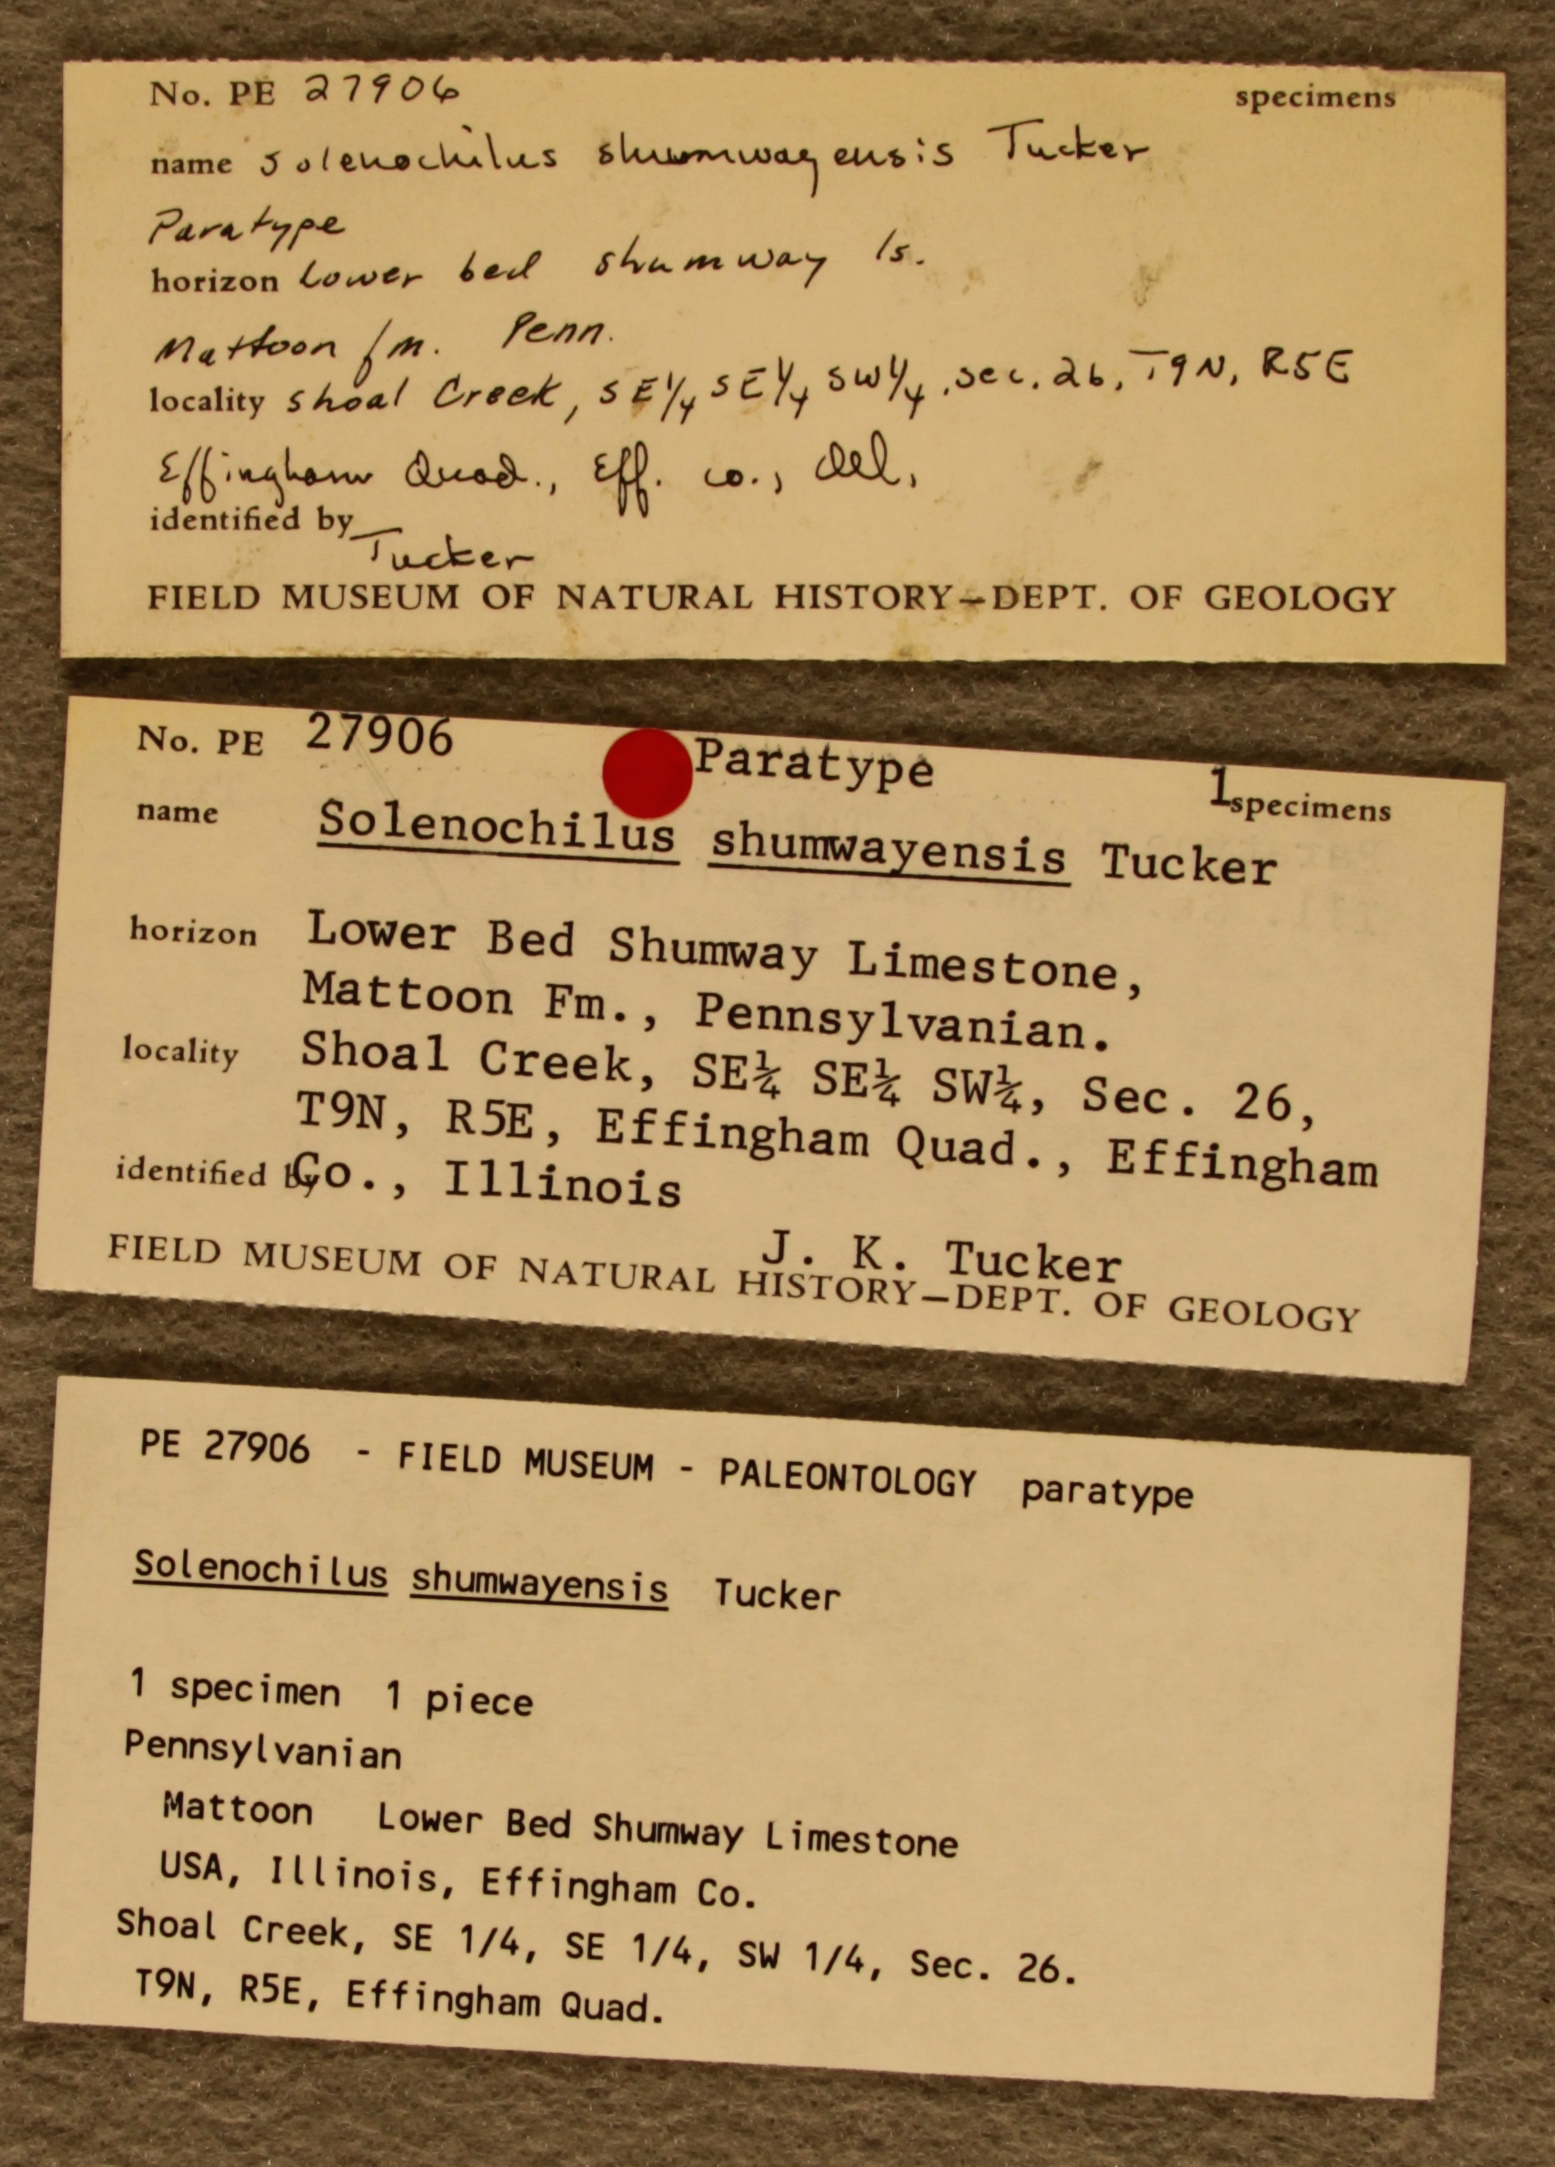 No. PE 27906 specimens
name Solenochilus shumwayensis Tucker
Paratype
horizon Lower bed shumway ls.
Mattoon fm. Penn.
locality Shoal Creek, SE1/4 SE1/4 SW1/4, sec. 26, T9N, R5E
Effingham Quad., Eff. co., Ill,
identified by Tucker
FIELD MUSEUM OF NATURAL HISTORY—DEPT. OF GEOLOGY
No. PE 27906 Paratype 1 specimens
name Solenochilus shumwayensis Tucker
horizon Lower Bed Shumway Limestone,
Mattoon Fm., Pennsylvanian.
locality Shoal Creek, SE¼ SE¼ SW¼, Sec. 26,
T9N, R5E, Effingham Quad., Effingham
identified by Co., Illinois
J. K. Tucker
FIELD MUSEUM OF NATURAL HISTORY—DEPT. OF GEOLOGY
PE 27906 - FIELD MUSEUM - PALEONTOLOGY paratype
Solenochilus shumwayensis Tucker
1 specimen 1 piece
Pennsylvanian
Mattoon Lower Bed Shumway Limestone
USA, Illinois, Effingham Co.
Shoal Creek, SE 1/4, SE 1/4, SW 1/4, Sec. 26.
T9N, R5E, Effingham Quad.